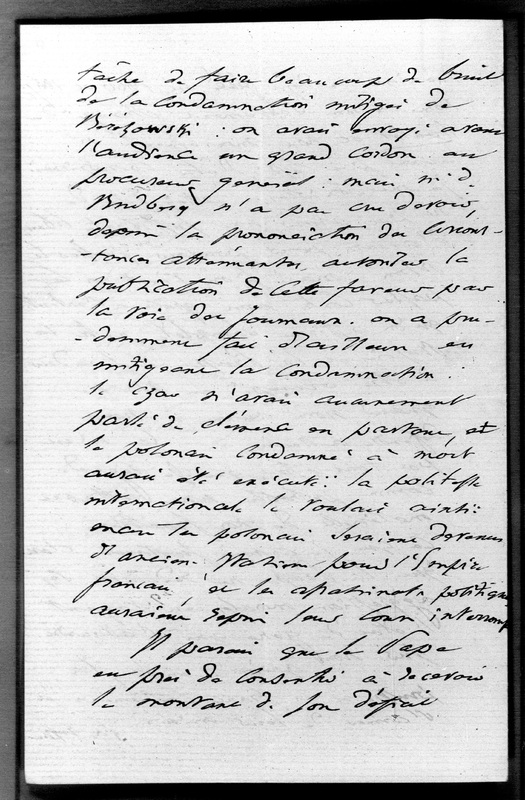 tâche de faire beaucoup de bruit
de la Condamnation mitigée de
Bérézowski : on avait envoyé avant
l'audience un grand Cordon au
procureur général : mais M. de
Budberg n'a pas cru devoir,
depuis la prononciation des Circons-
-tances atténuantes, autoriser la
publication de Cette faveur par
la voie des journaux. on a pru-
-demment fait d'ailleurs en
mitigeant la Condamnation :
le czar n'avait aucunement
parlé de clémence en partant, et
le polonais Condamné à mort
aurait été exécuté : la politesse
internationale le voulait ainsi :
les polonais seraient devenus
pour l'Empire
français, et les assassinats politiques
auraient repris leur cours interrompu
Il parait que le Pape
est près de Consentir à recevoir
le montant de son déficit